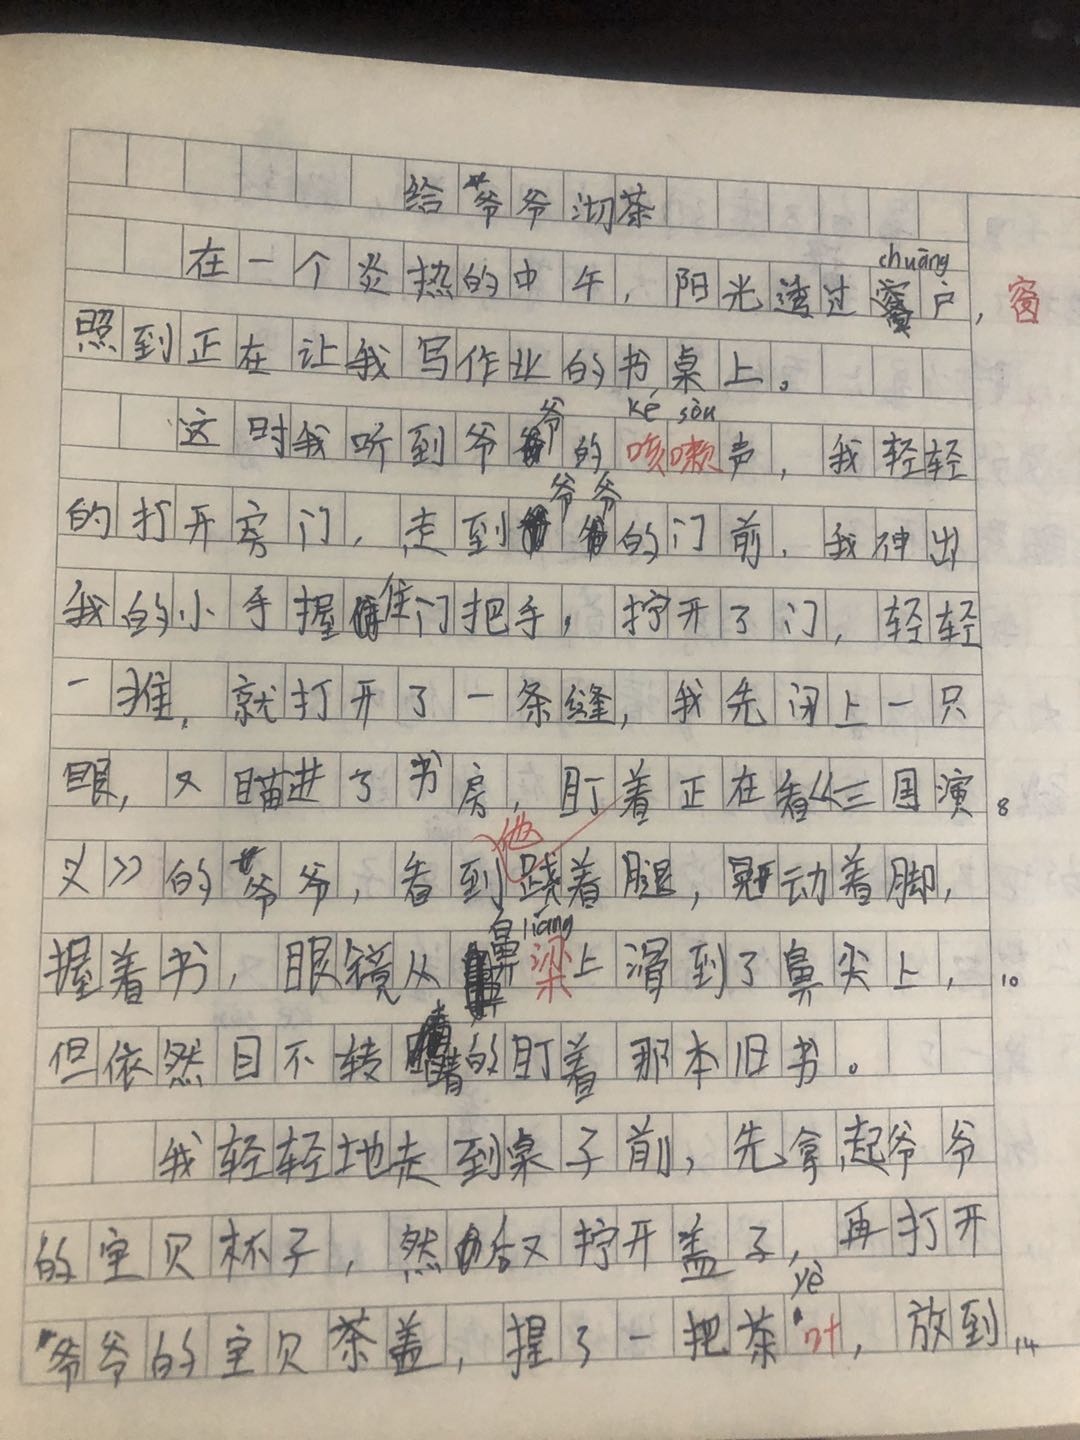 给爷爷沏茶
chuāng
在一个炎热的中午，阳光透过窗户，窗
照到正在让我写作业的书桌上。
ké sòu
这时我听到爷爷的咳嗽声，我轻轻
的打开房门，走到爷爷的门前，我伸出
我的小手握住门把手，拧开了门，轻轻
一推，就打开了一条缝，我先闭上一只
眼，又瞄进了书房，盯着正在看《三国演
8
他
义》的爷爷，看到跷着腿，晃动着脚，
liáng
握着书，眼镜从鼻梁上滑到了鼻尖上，
10
但依然目不转睛的盯着那本旧书。
我轻轻地走到桌子前，先拿起爷爷
的宝贝杯子，然后又拧开盖子，再打开
yè
爷爷的宝贝茶盖，握了一把茶叶，放到
14